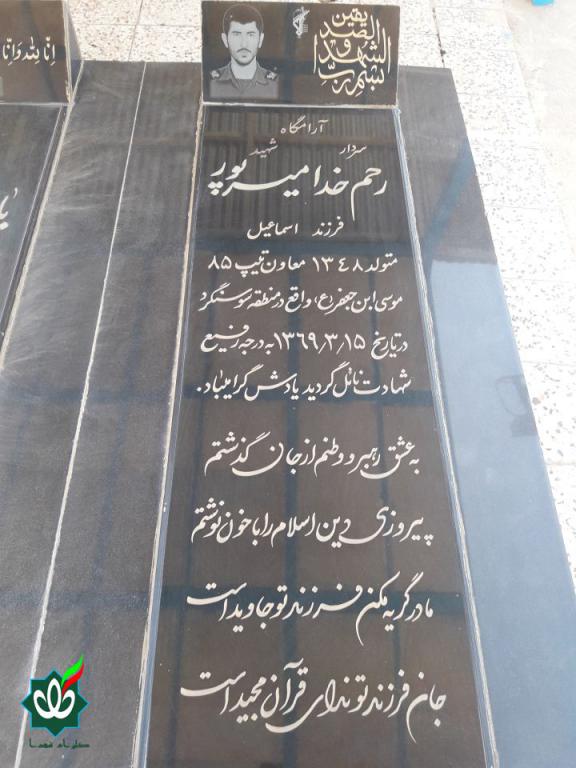 بسم رب
الشهدا و
الصدیقین
انا لله وانا
آرامگاه
سردار شهید
رحم خدا میرپور
فرزند اسماعیل
متولد ۱۳۴۸ معاون تیپ ۸۵
موسی ابن جعفر (ع) واقع در منطقه سوسنگرد
در تاریخ ۱۳۶۹٫۳٫۱۵ به درجه رفیع
شهادت نائل گردید یادش گرامیباد.
به عشق رهبر و وطنم از جان گذشتم
پیروزی دین اسلام را با خون نوشتم
مادر گریه مکن فرزند تو جاوید است
جان فرزند تو ندای قرآن مجید است